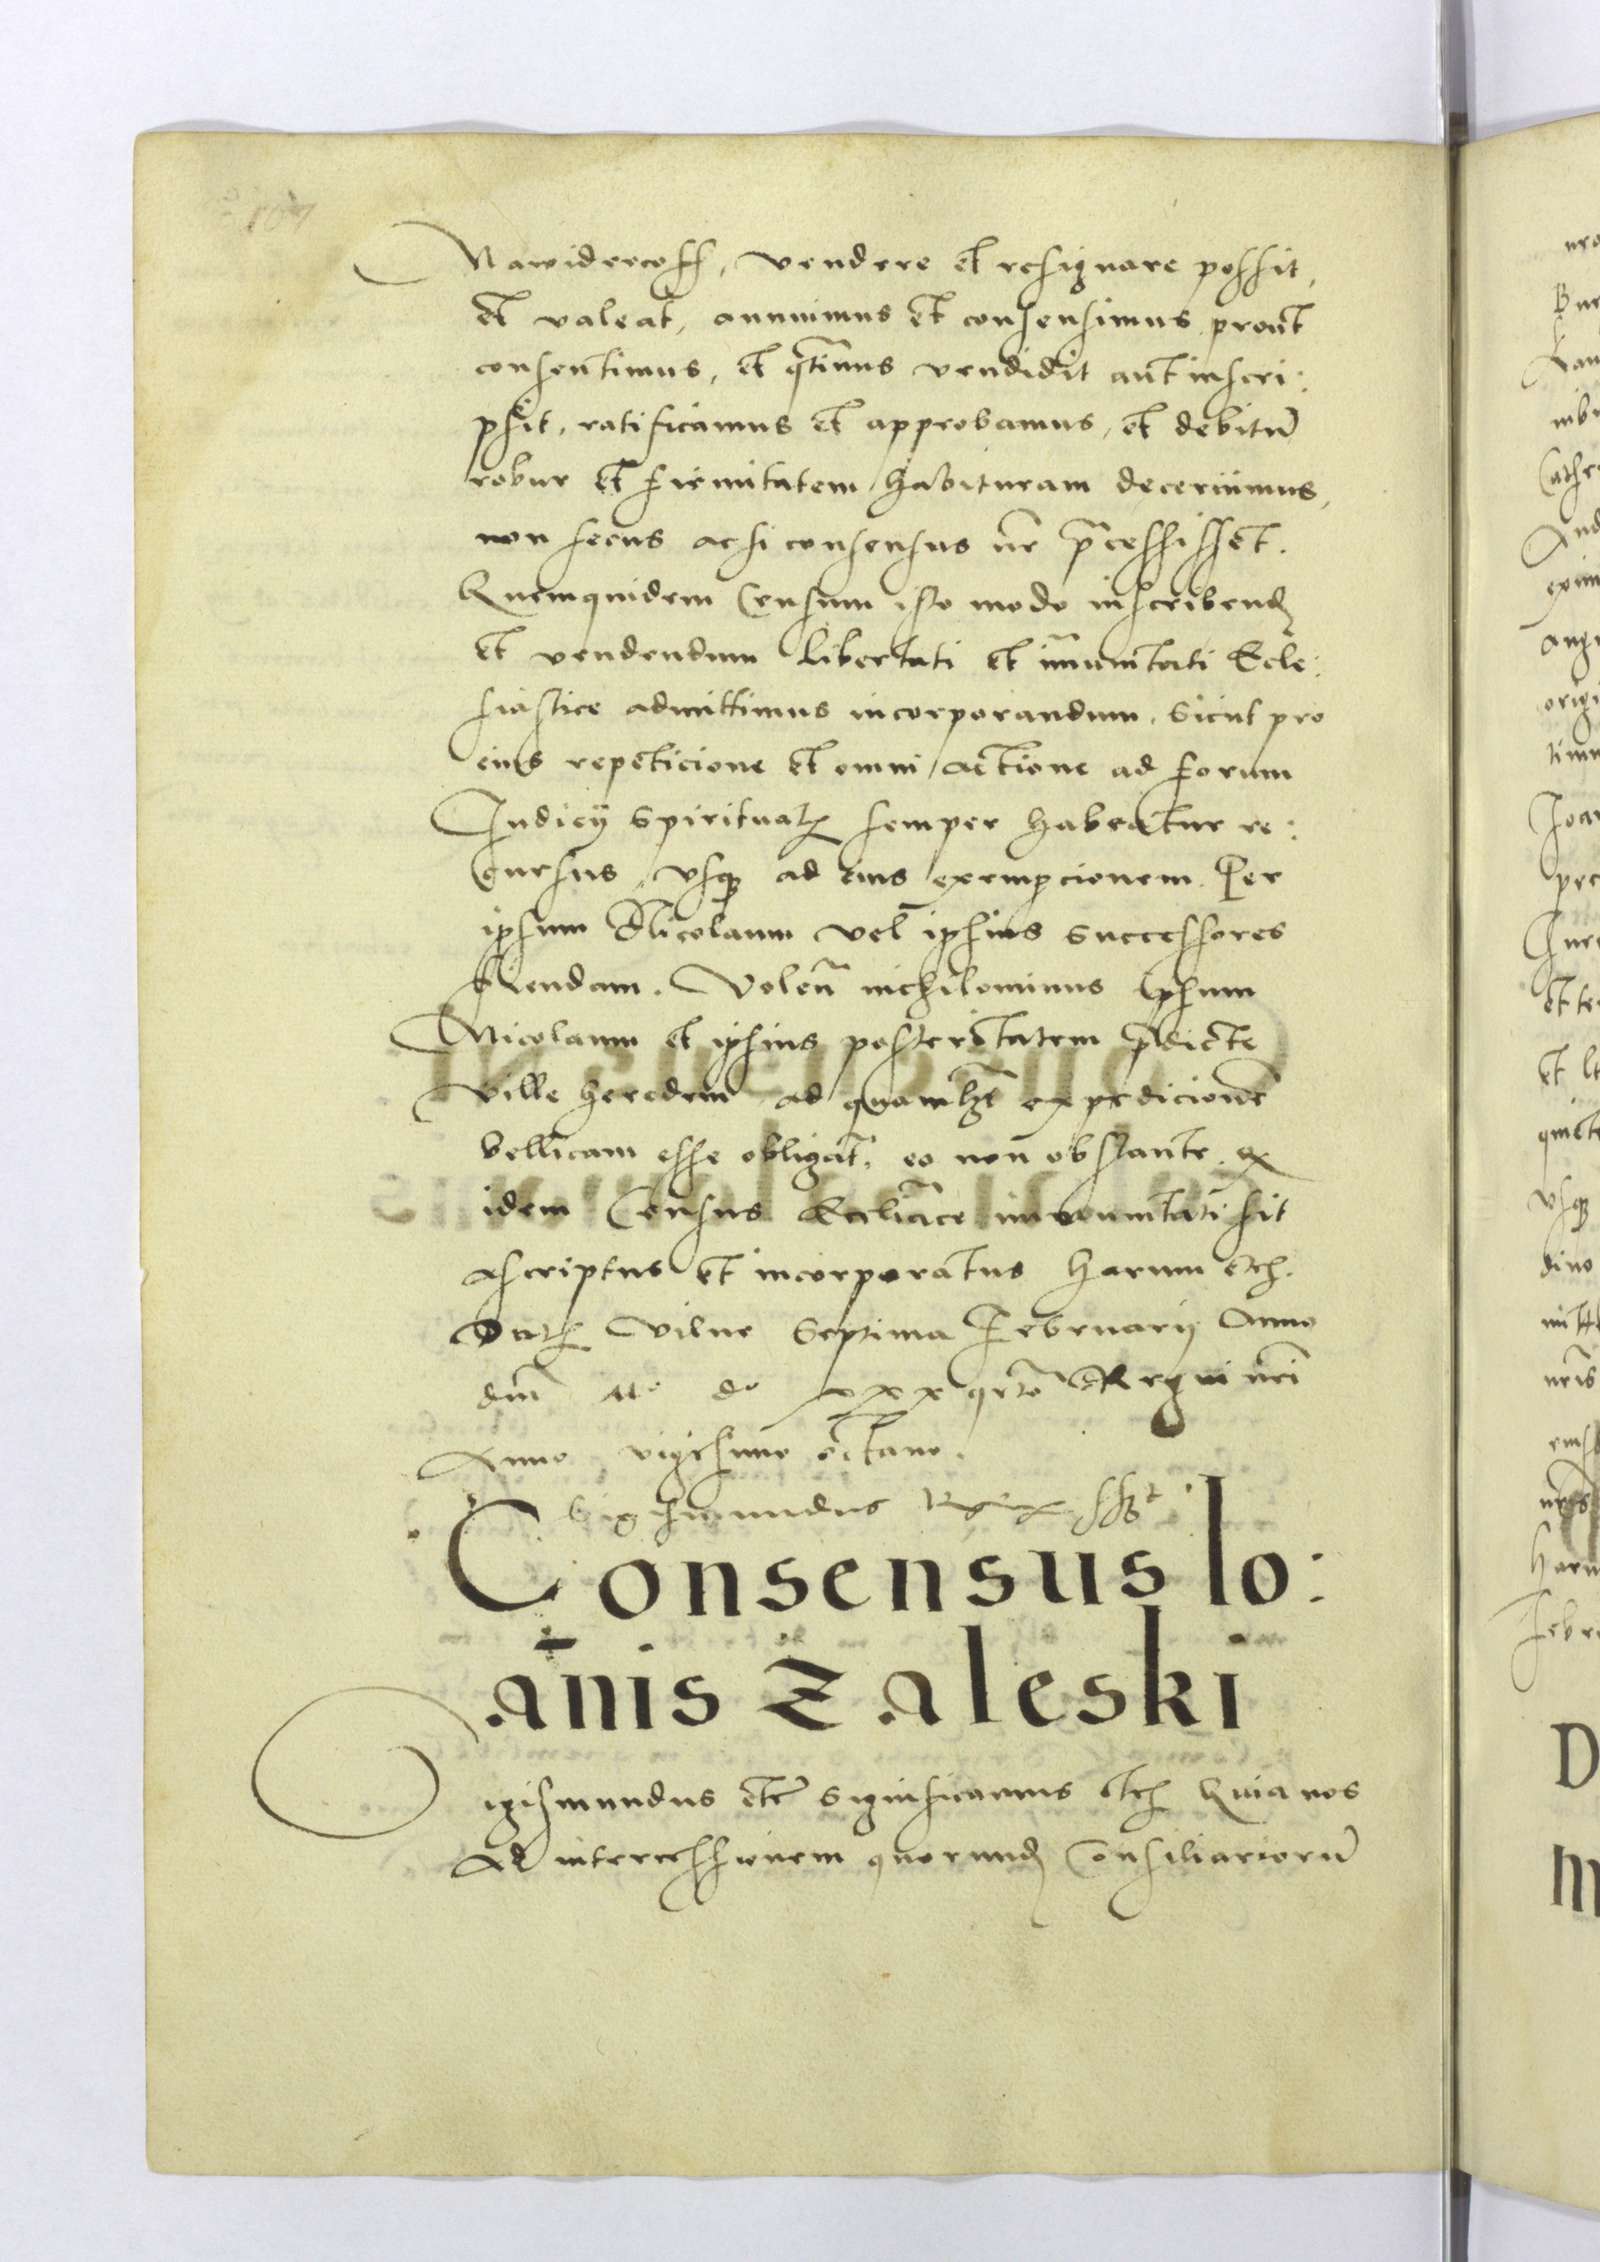 107
Nawidercoff, vendere et resignare possit,
et valeat, annuimus et consensimus prout
consentimus, et q̄tinus vendidit aut inscri:
psit, ratificamus et approbamus, et debitū
robur et firmitatem habituram decernimus,
non secus ac si consensus nr̄ p̄cessisset.
Quemquidem Censum isto modo inscribend
et vendendum libertati et im̄unitati Eccle:
siastice admittimus incorporandum, Sicut pro
eius repeticione et omni actione ad forum
Iudicij Spiritual semper habeatur re:
cursus, vsq ad eius exempcionem. Per
ipsum Nicolaum vel ipsius Successores
fiendam. Volen̄ nichilominus Ipsum
Nicolaum et ipsius posteritatem p̄dicte
Ville heredem ad quamlt expedicionē
bellicam esse obligat, eo non obstante, q
idem Census Eccliāce immunitati sit
ascriptus et incorporatus Harum etc.
Dat Vilne Septima Februarij Anno
dni Mº dº xxx qrto Regni nri
Anno vigesimo octavo.
Sigismundus Rex sst
Consensus Io:
ān̄is Zaleski
igismundus etc Significamus etc Quia nos
Ad intercessionem quorund Consiliariorū